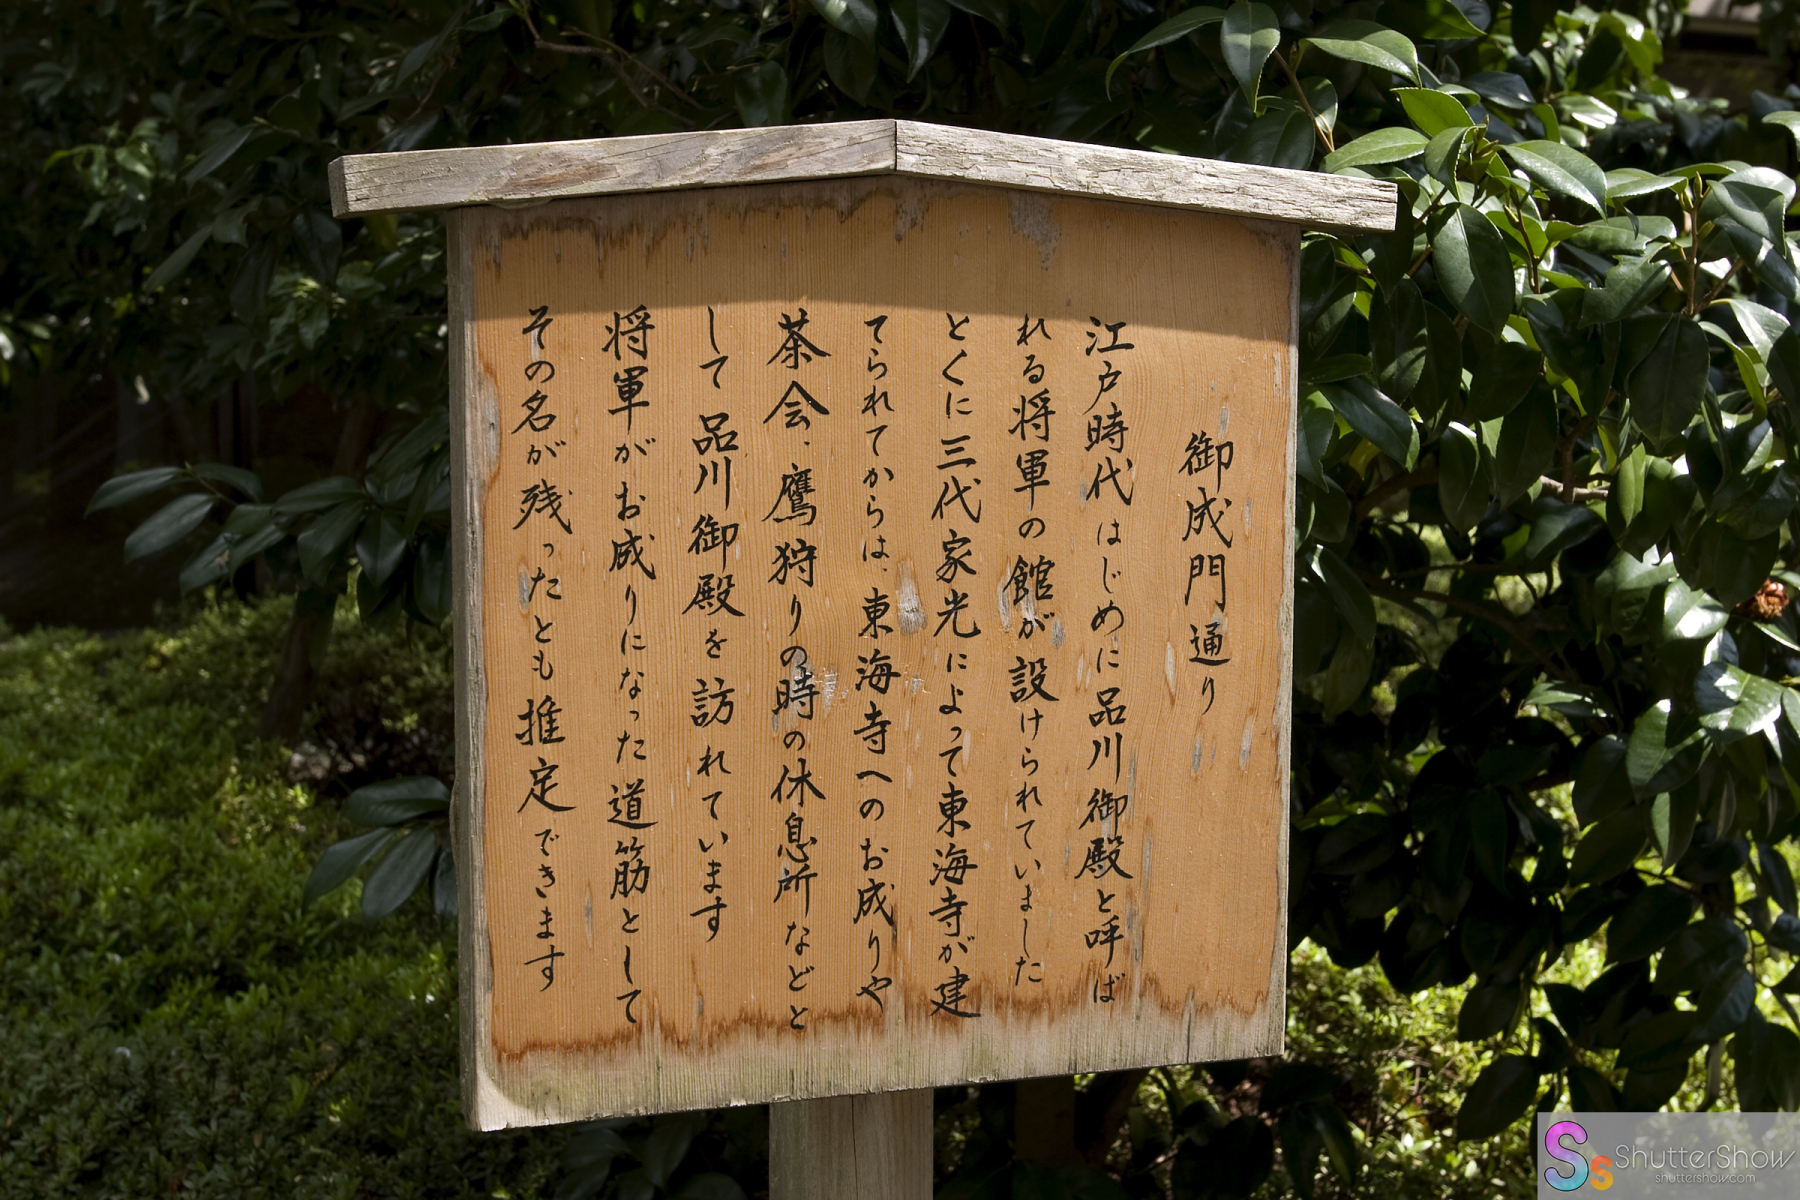 御成門通り
江戸時代はじめに品川御殿と呼ば
れる将軍の館が設けられていました
とくに三代家光によって東海寺が建
てられてからは、東海寺へのお成りや
茶会、鷹狩りの時の休息所などと
して品川御殿を訪れています
将軍がお成りになった道筋として
その名が残ったとも推定できます
Ss ShutterShow
shuttershow.com